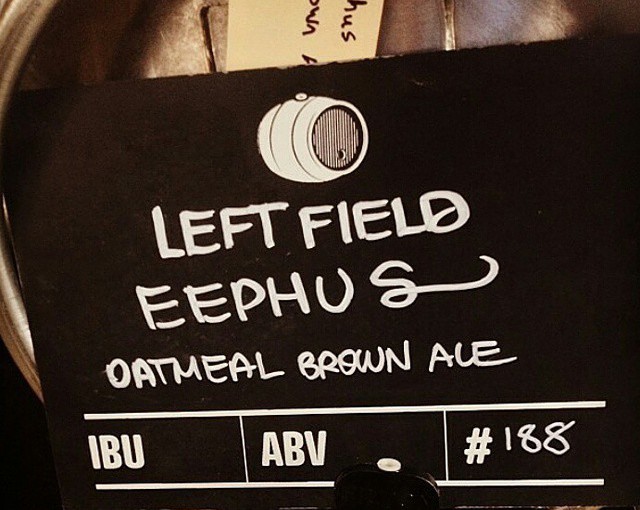 LEFT FIELD
EEPHUS
OATMEAL BROWN ALE
IBU
ABV
#188